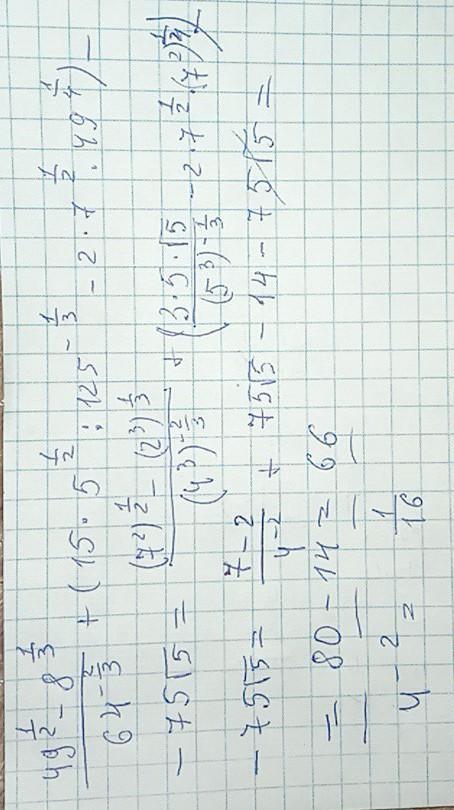 (49^(1/2) - 8^(1/3))/(64^(-2/3)) + (15 · 5^(1/2) : 125^(-1/3) - 2 · 7^(1/2) · 49^(1/4)) -
- 75√5 = ((7²)^(1/2) - (2³)^(1/3))/((4³)^(-2/3)) + ((3·5·√5)/((5³)^(-1/3)) - 2·7^(1/2)·(7²)^(1/4)) -
- 75√5 = (7-2)/(4^(-2)) + 75√5 - 14 - 75√5 =
= 80 - 14 = 66
4^(-2) = 1/16